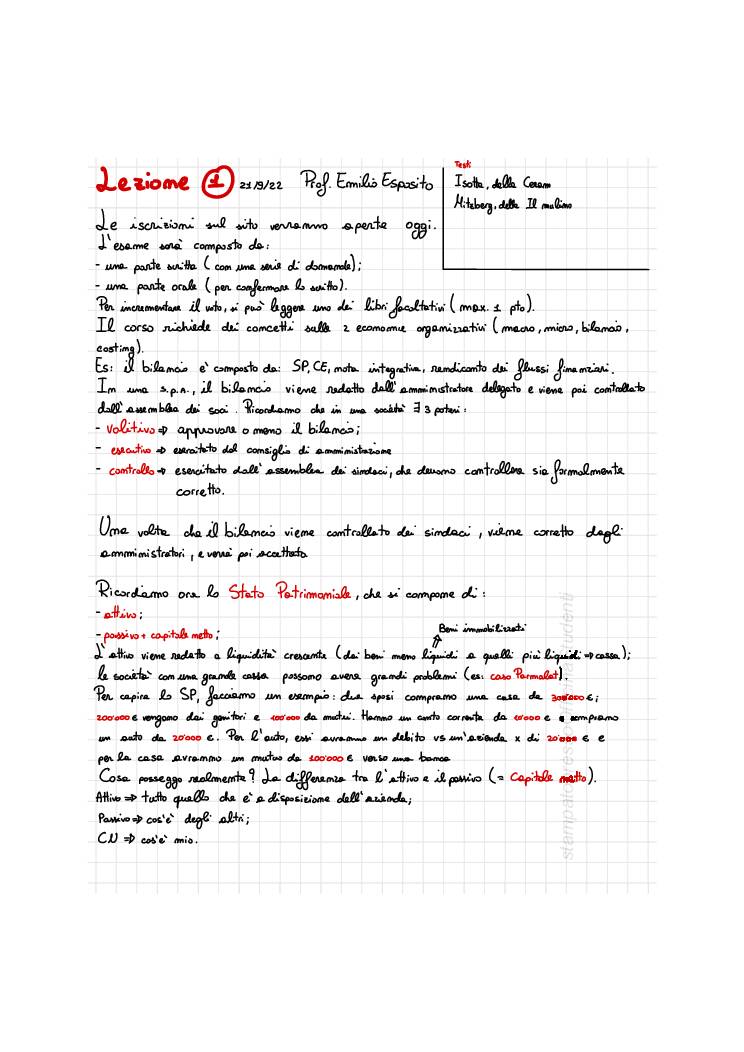 Testi
Lezione 1 21/9/22 Prof. Emilio Esposito
Isotta, della Ceram
Mitzberg, delle Il mulino
Le iscrizioni sul sito verranno aperte oggi.
L'esame sarà composto da:
- una parte scritta (con una serie di domande);
- una parte orale (per confermare lo scritto).
Per incrementare il voto, si può leggere uno dei libri facoltativi (max. 1 pto).
Il corso richiede dei concetti sulle 2 economie organizzativi (macro, micro, bilancio,
costing).
Es: il bilancio è composto da: SP, CE, nota integrativa, rendiconto dei flussi finanziari.
In una s.p.a., il bilancio viene redatto dall'amministratore delegato e viene poi controllato
dall'assemblea dei soci. Ricordiamo che in una società ∃ 3 poteri:
- volitivo ⇒ approvare o meno il bilancio;
- esecutivo ⇒ esercitato dal consiglio di amministrazione
- controllo ⇒ esercitato dall'assemblea dei sindaci, che devono controllare sia formalmente
corretto.
Una volta che il bilancio viene controllato dai sindaci, viene corretto dagli
amministratori, e verrà poi accettato
Ricordiamo ora lo Stato Patrimoniale, che si compone di:
- attivo;
- passivo + capitale netto;
Beni immobilizzati
L'attivo viene redatto a liquidità crescente (dai beni meno liquidi a quelli più liquidi ⇒ cassa);
le società con una grande cassa possono avere grandi problemi (es: caso Parmalat).
Per capire lo SP, facciamo un esempio: due sposi comprano una casa da 300'000 €;
200'000 € vengono dai genitori e 100'000 da mutui. Hanno un conto corrente da 10'000 € e comprano
un auto da 20'000 €. Per l'auto, essi avranno un debito vs un'azienda x di 20'000 € e
per la casa avranno un mutuo da 100'000 € verso una banca
Cosa posseggo realmente? La differenza tra l'attivo e il passivo (= Capitale netto).
Attivo ⇒ tutto quello che è a disposizione dell'azienda;
Passivo ⇒ cos'è degli altri;
CN ⇒ cos'è mio.